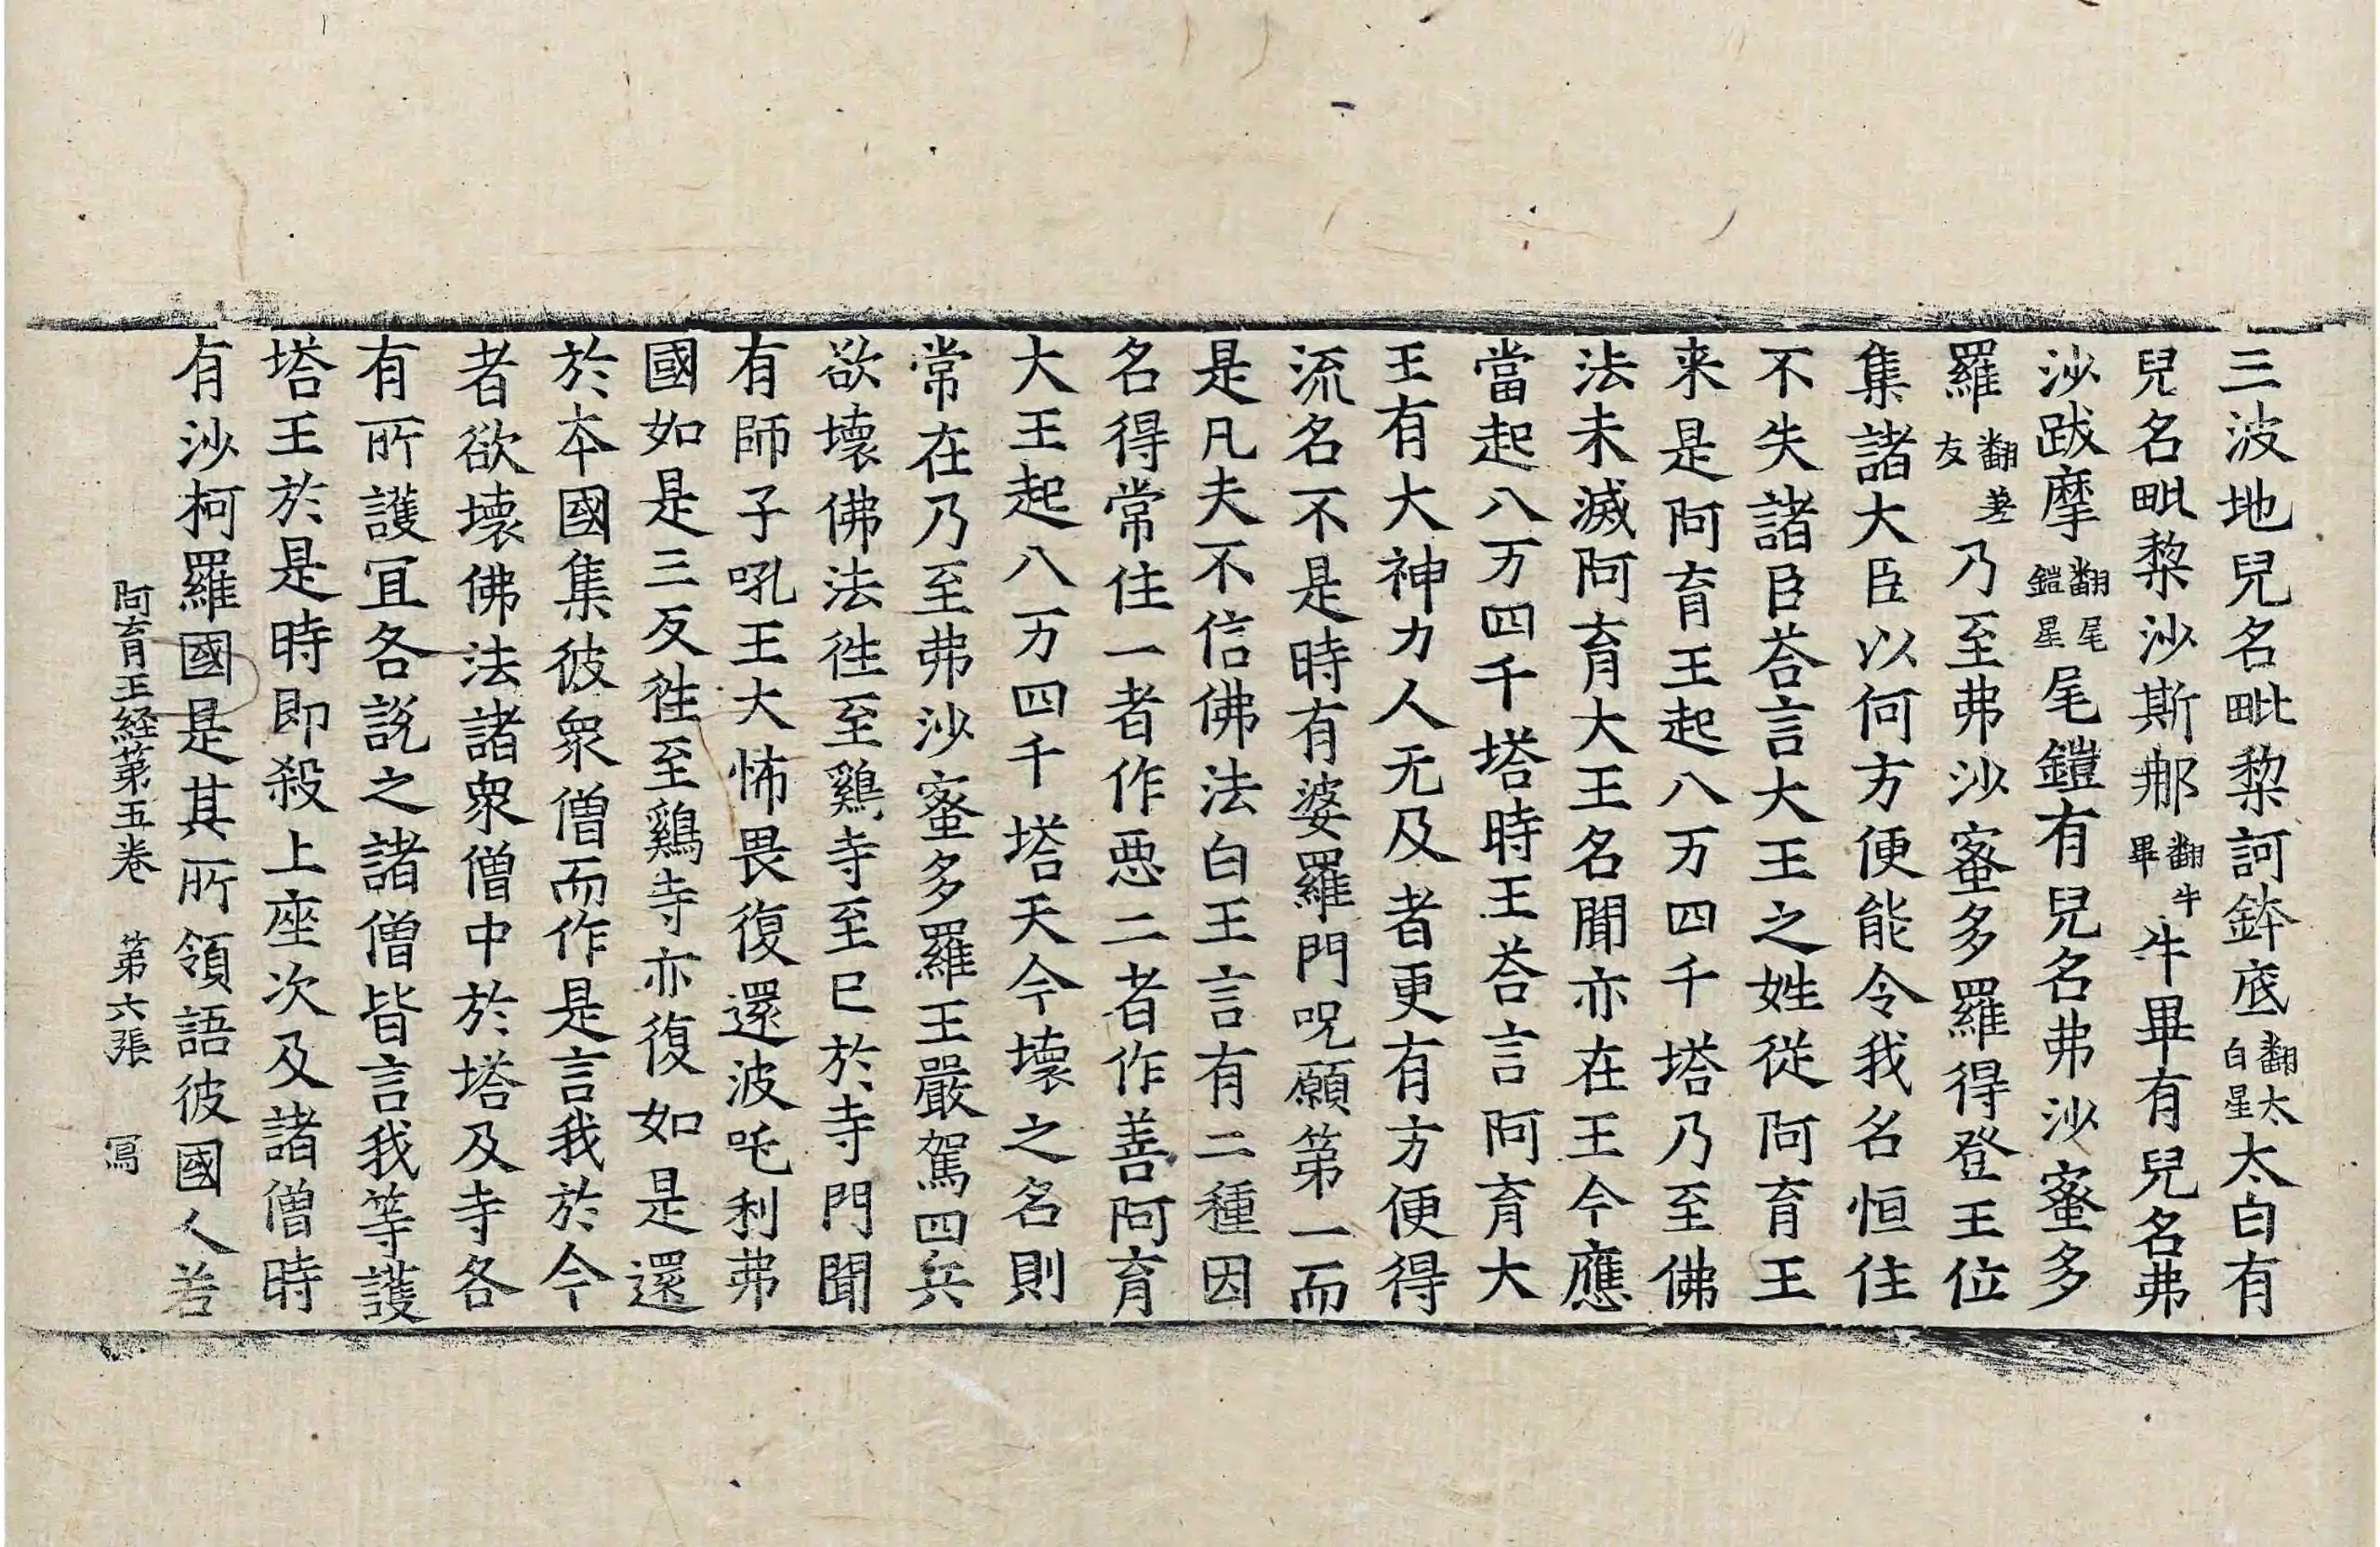 三波地兒名毗黎訶鉢底翻太白星太白有
兒名毗黎沙斯那翻牛畢牛畢有兒名弗
沙跋摩翻尾鎧星尾鎧有兒名弗沙蜜多
羅翻差友乃至弗沙蜜多羅得登王位
集諸大臣以何方便能令我名恒住
不失諸臣荅言大王之姓從阿育王
来是阿育王起八万四千塔乃至佛
法未滅阿育大王名聞亦在王今應
當起八万四千塔時王荅言阿育大
王有大神力人无及者更有方便得
流名不是時有婆羅門呪願第一而
是凡夫不信佛法白王言有二種因
名得常住一者作惡二者作善阿育
大王起八万四千塔天今壞之名則
常在乃至弗沙蜜多羅王嚴駕四兵
欲壞佛法徃至鷄寺至已於寺門聞
有師子吼王大怖畏復還波吒利弗
國如是三反徃至鷄寺亦復如是還
於本國集彼衆僧而作是言我於今
者欲壞佛法諸衆僧中於塔及寺各
有所護冝各說之諸僧皆言我等護
塔王於是時即殺上座次及諸僧時
有沙柯羅國是其所領語彼國人若
阿育王経第五卷　第六張　寫